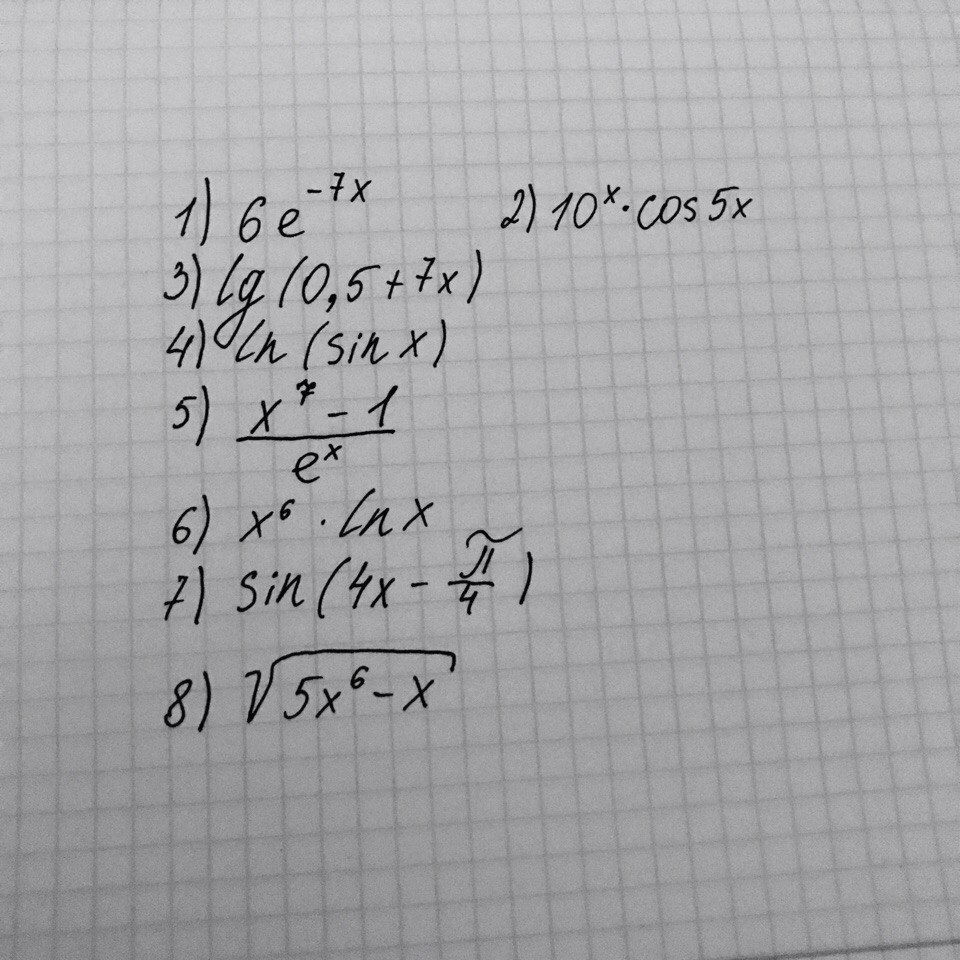 1) 6e^{-7x} 2) 10^x · cos 5x
3) lg (0,5 + 7x)
4) ln (sin x)
5) \frac{x^7 - 1}{e^x}
6) x^6 · ln x
7) sin (4x - \frac{π}{4})
8) \sqrt{5x^6 - x}